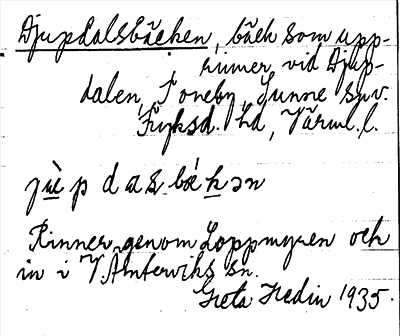 Djupdalsbäcken, bäck som upp-
rinner vid Djup-
dalen, Toneby, Sunne sn v.
Fryksd. hd, Värml. l.
Rinner genom Loppmyren och
in i V Ämterviks sn.
Greta Hedin 1935.